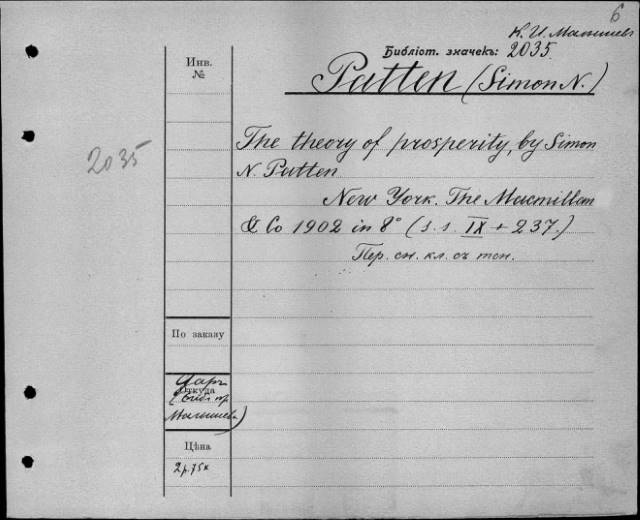 6
К. И. Малышев
Библіот. значекъ: 2035.
Инв.
№
Patten (Simon N.)
2035
The theory of prosperity, by Simon
N. Patten
New York. The Macmillan
& Co 1902 in 8° (s.s. IX + 237.)
Пер. сн. кл. съ тон.
По заказу
Откуда
Малышева)
Цѣна
2 р. 75 к